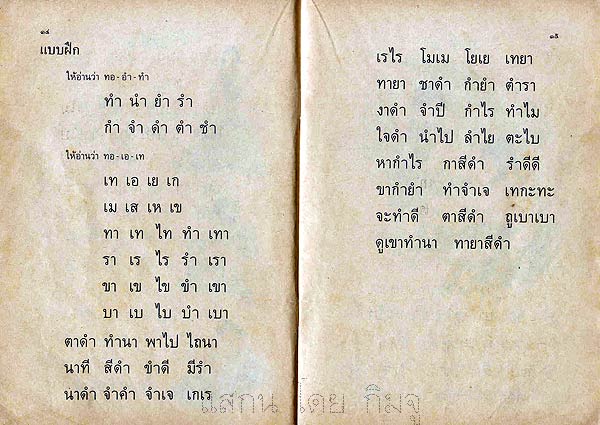 ๑๔
แบบฝึก
ให้อ่านว่า ทอ-อำ-ทำ
ทำ นำ ยำ รำ
กำ จำ ดำ ตำ ชำ
ให้อ่านว่า ทอ-เอ-เท
เท เอ เย เก
เม เส เห เข
ทา เท ไท ทำ เทา
รา เร ไร รำ เรา
ขา เข ไข ขำ เขา
บา เบ ไบ บำ เบา
ตาดำ ทำนา พาไป ไถนา
นาที สีดำ ขำดี มีรำ
นาดำ จำคำ จำเจ เกเร
๑๕
เรไร โมเม โยเย เทยา
ทายา ชาดำ กำยำ ตำรา
งาดำ จำปี กำไร ทำไม
ใจดำ นำไป ลำไย ตะไบ
หากำไร กาสีดำ รำดีดี
ขากำยำ ทำจำเจ เทกะทะ
จะทำดี ตาสีดำ ถูเบาเบา
ดูเขาทำนา ทายาสีดำ
แสกน โดย กิมจู